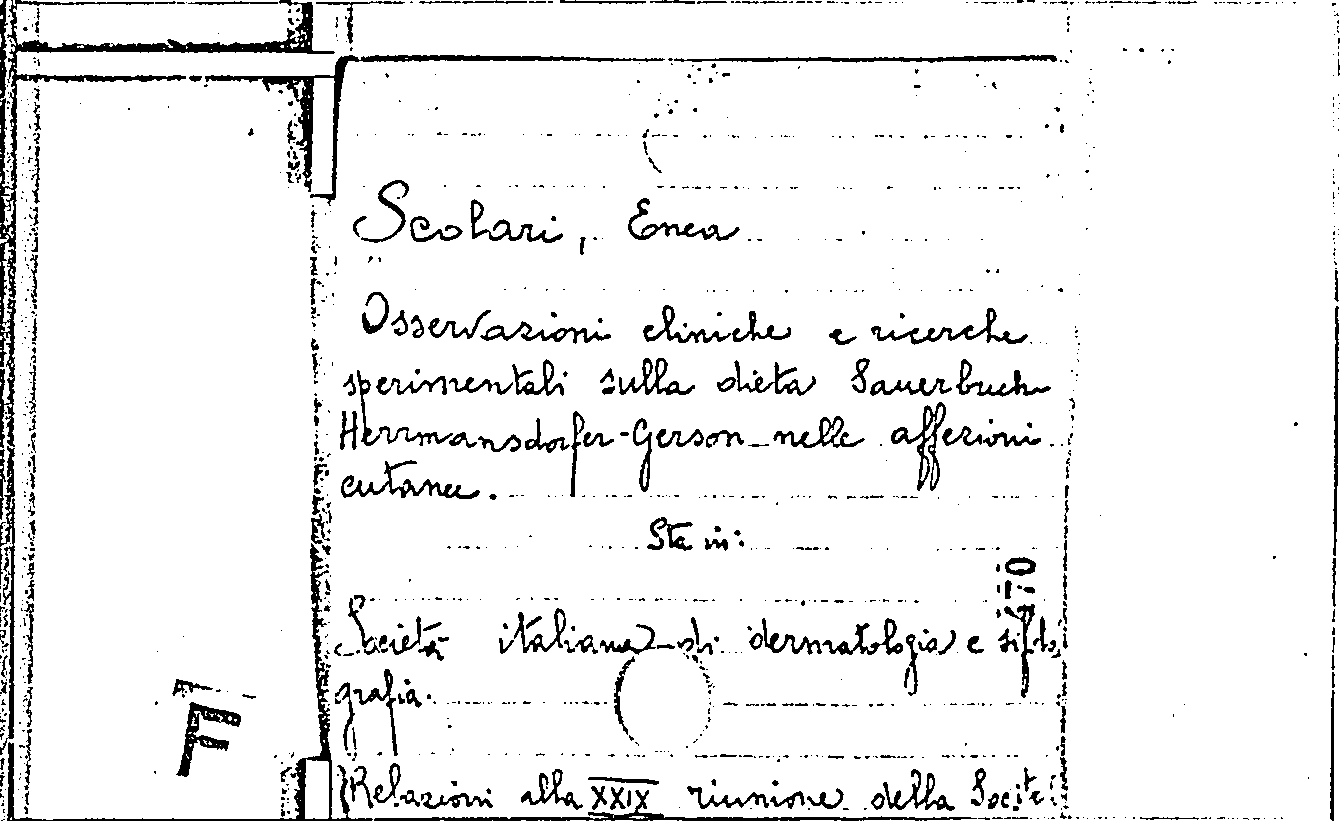 Scolari, Enea
Osservazioni cliniche e ricerche
sperimentali sulla dieta Sauerbruch
Herrmansdorfer-Gerson nelle affezioni
cutanee.
Sta in:
470
Società italiana di dermatologia e sifilo
grafia.
F
Relazioni alla XXIX riunione della Socie